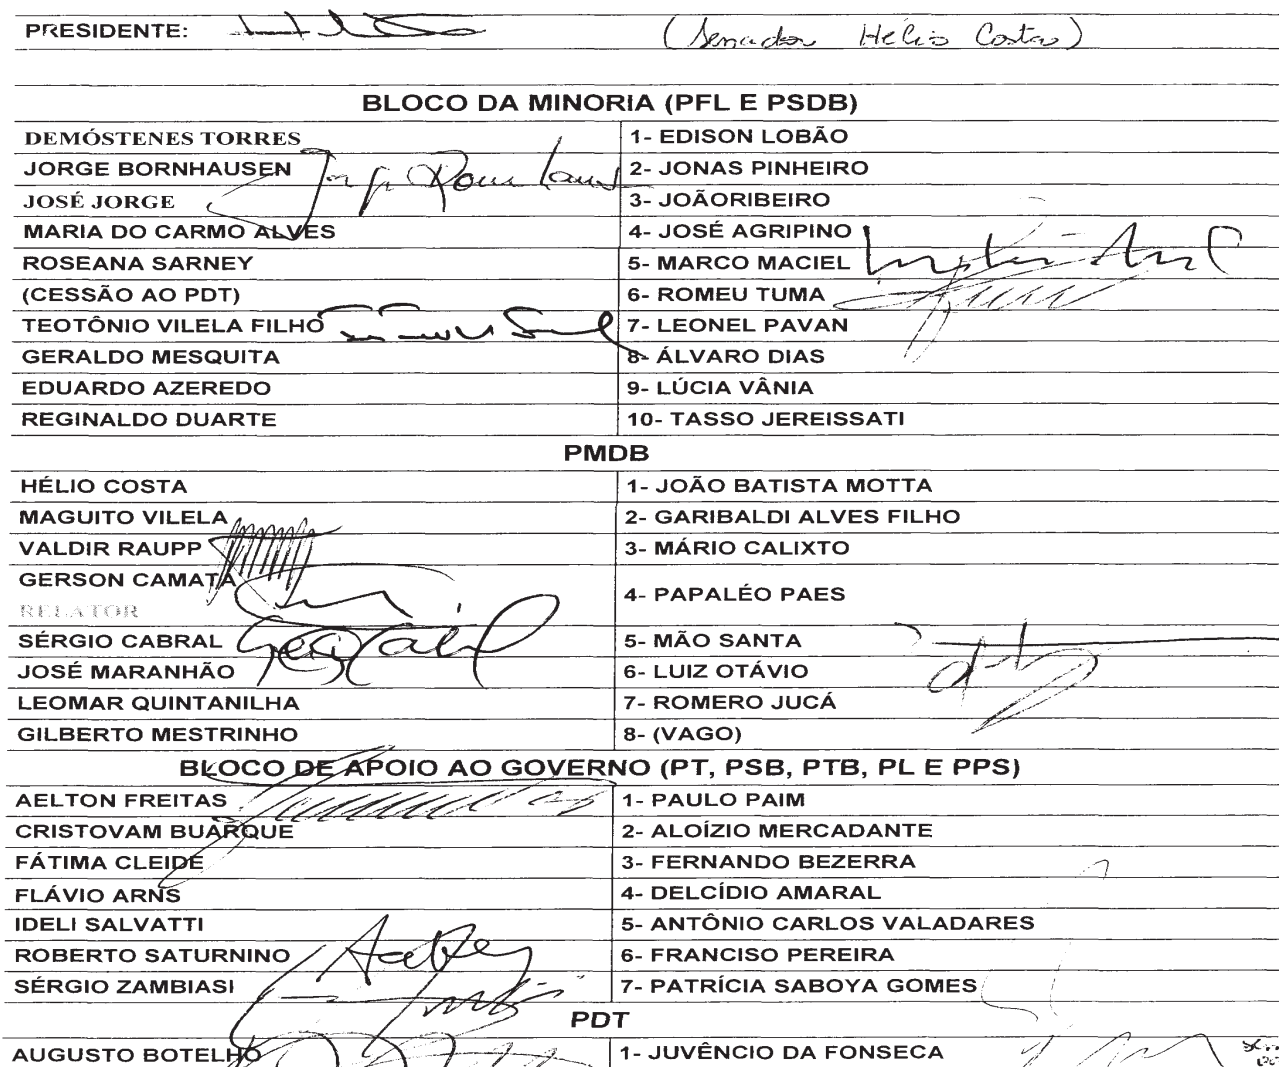 PRESIDENTE: (Senador Hélio Costa)
BLOCO DA MINORIA (PFL E PSDB)
DEMÓSTENES TORRES 1- EDISON LOBÃO
JORGE BORNHAUSEN 2- JONAS PINHEIRO
JOSÉ JORGE 3- JOÃORIBEIRO
MARIA DO CARMO ALVES 4- JOSÉ AGRIPINO
ROSEANA SARNEY 5- MARCO MACIEL
(CESSÃO AO PDT) 6- ROMEU TUMA
TEOTÔNIO VILELA FILHO 7- LEONEL PAVAN
GERALDO MESQUITA 8- ÁLVARO DIAS
EDUARDO AZEREDO 9- LÚCIA VÂNIA
REGINALDO DUARTE 10- TASSO JEREISSATI
PMDB
HÉLIO COSTA 1- JOÃO BATISTA MOTTA
MAGUITO VILELA 2- GARIBALDI ALVES FILHO
VALDIR RAUPP 3- MÁRIO CALIXTO
GERSON CAMATA 4- PAPALÉO PAES
RELATOR
SÉRGIO CABRAL 5- MÃO SANTA
JOSÉ MARANHÃO 6- LUIZ OTÁVIO
LEOMAR QUINTANILHA 7- ROMERO JUCÁ
GILBERTO MESTRINHO 8- (VAGO)
BLOCO DE APOIO AO GOVERNO (PT, PSB, PTB, PL E PPS)
AELTON FREITAS 1- PAULO PAIM
CRISTOVAM BUARQUE 2- ALOÍZIO MERCADANTE
FÁTIMA CLEIDE 3- FERNANDO BEZERRA
FLÁVIO ARNS 4- DELCÍDIO AMARAL
IDELI SALVATTI 5- ANTÔNIO CARLOS VALADARES
ROBERTO SATURNINO 6- FRANCISO PEREIRA
SÉRGIO ZAMBIASI 7- PATRÍCIA SABOYA GOMES
PDT
AUGUSTO BOTELHO 1- JUVÊNCIO DA FONSECA